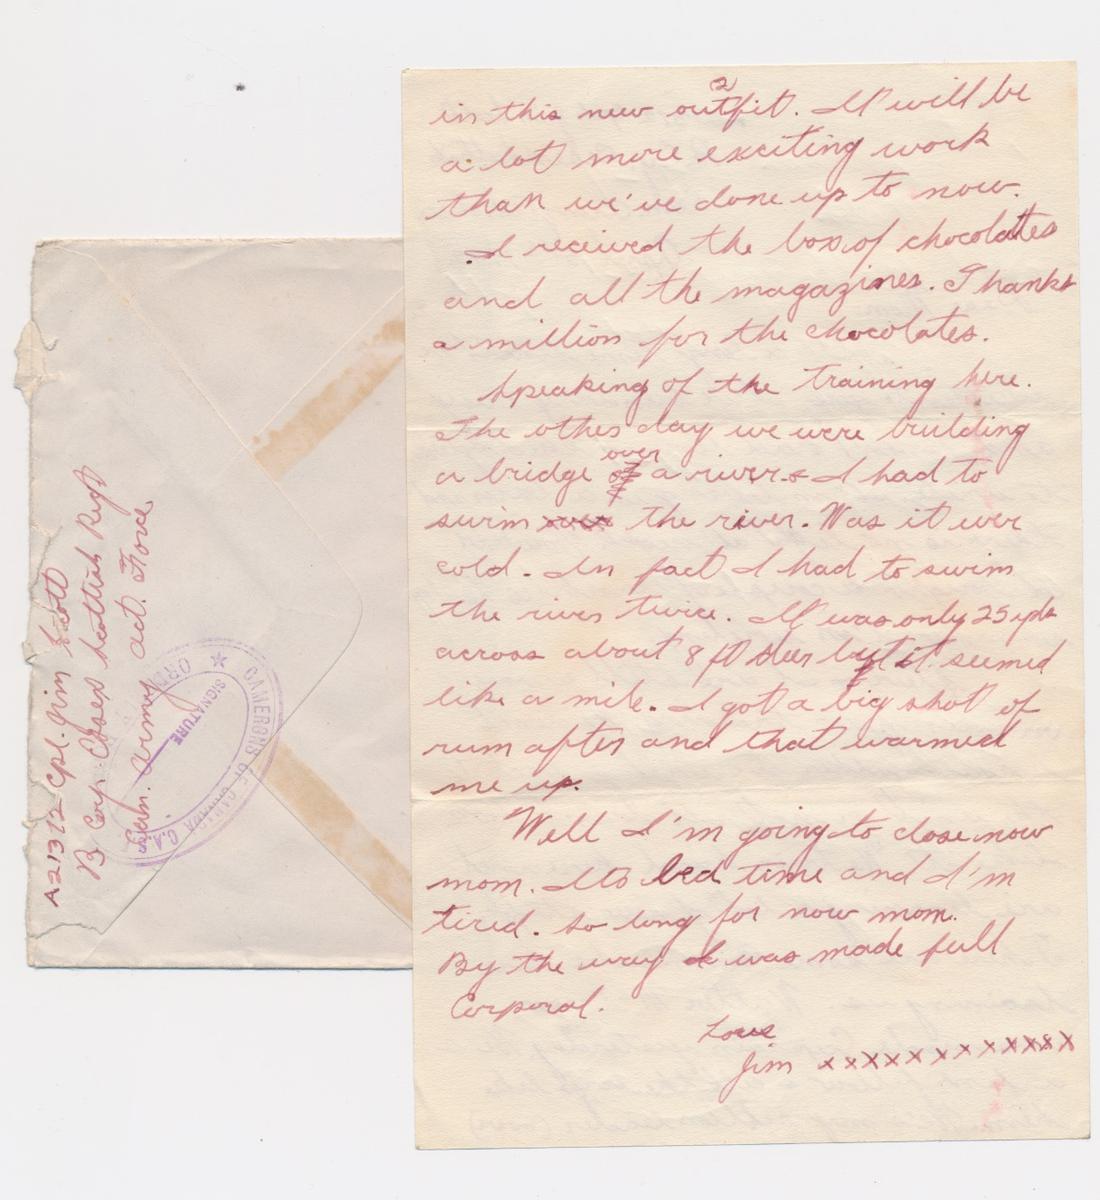 A21372 Cpl. Jim Scott
B Corp Essex Scottish Regt
Can. Army Act. Force
CAMERONS OF CANADA C.A.
SIGNATURE
2
in this new outfit. It will be
a lot more exciting work
than we've done up to now.
I received the box of chocolates
and all the magazines. Thanks
a million for the chocolates.
Speaking of the training here.
The other day we were building
a bridge over a river & I had to
swim the river. Was it ever
cold. In fact I had to swim
the river twice. It was only 25 yds
across about 8 ft deep but it seemed
like a mile. I got a big shot of
rum after and that warmed
me up.
Well I'm going to close now
mom. Its bed time and I'm
tired. so long for now mom.
By the way I was made full
Corporal.
Love
Jim xxxxxxxxxxxxx